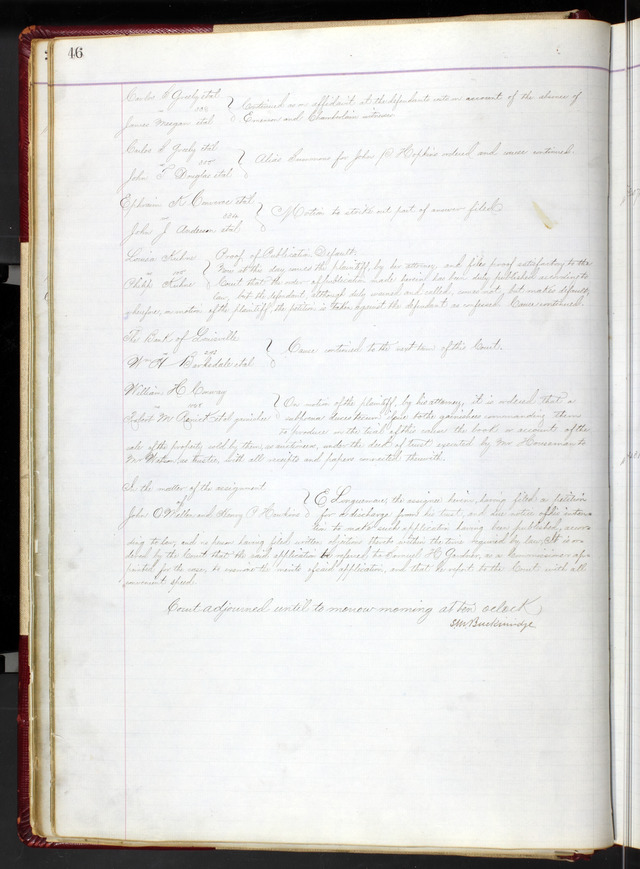 46
Carlos S Greely et al
vs } Continued on an affidavit at the defendants costs on account of the absence of
James Morgan et al } Emerson and Chamberlain witnesses
Carlos S Greely et al
vs } Alias Summons for John P Hopkins ordered and cause continued
John T Douglas et al
Ephraim et al
vs } Motion to strike out part of answer filed
John J Anderson et al
Louisa Kuhne } Proof of Publication Default.
vs } Now at this day comes the plaintiff, by his attorney and files proof satisfactory to the
Philip Kuhne } Court that the order of publication made herein has been duly published according to
law, but the defendant although duly warned and called, comes not, but makes default,
wherefore, on motion of the plaintiff, the petition is taken against the defendant as confessed. Cause continued.
The Bank of Louisville
vs } Cause continued to the next term of this Court.
Wm H Barksdale et al
William H. Conway
vs } On motion of the plaintiff, by his attorney, it is ordered that a
M et al garnishees } subpoena duces tecum issue to the garnishees commanding them
to produce on the trial of this cause the book or account of the
sale of the property sold by them, as auctioneers, under the deed of trust executed by Mr
Mr Watson as trustee, with all receipts and papers connected therewith.
In the matter of the assignment
of } E Longuemare, the assignee herein, having filed a petition
John O and Henry C Hawkins } for a discharge from his trust, and due notice of his inten-
tion to make such application having been published, accor-
ding to law, and no person having filed written objections thereto within the time required by law, It is or-
dered by the Court that the said application be referred to H as a Commissioner ap-
pointed for the cause, to examine the merits of said application, and that he report to the Court with all
convenient speed.
Court adjourned until to morrow morning at ten oclock
S M Breckinridge